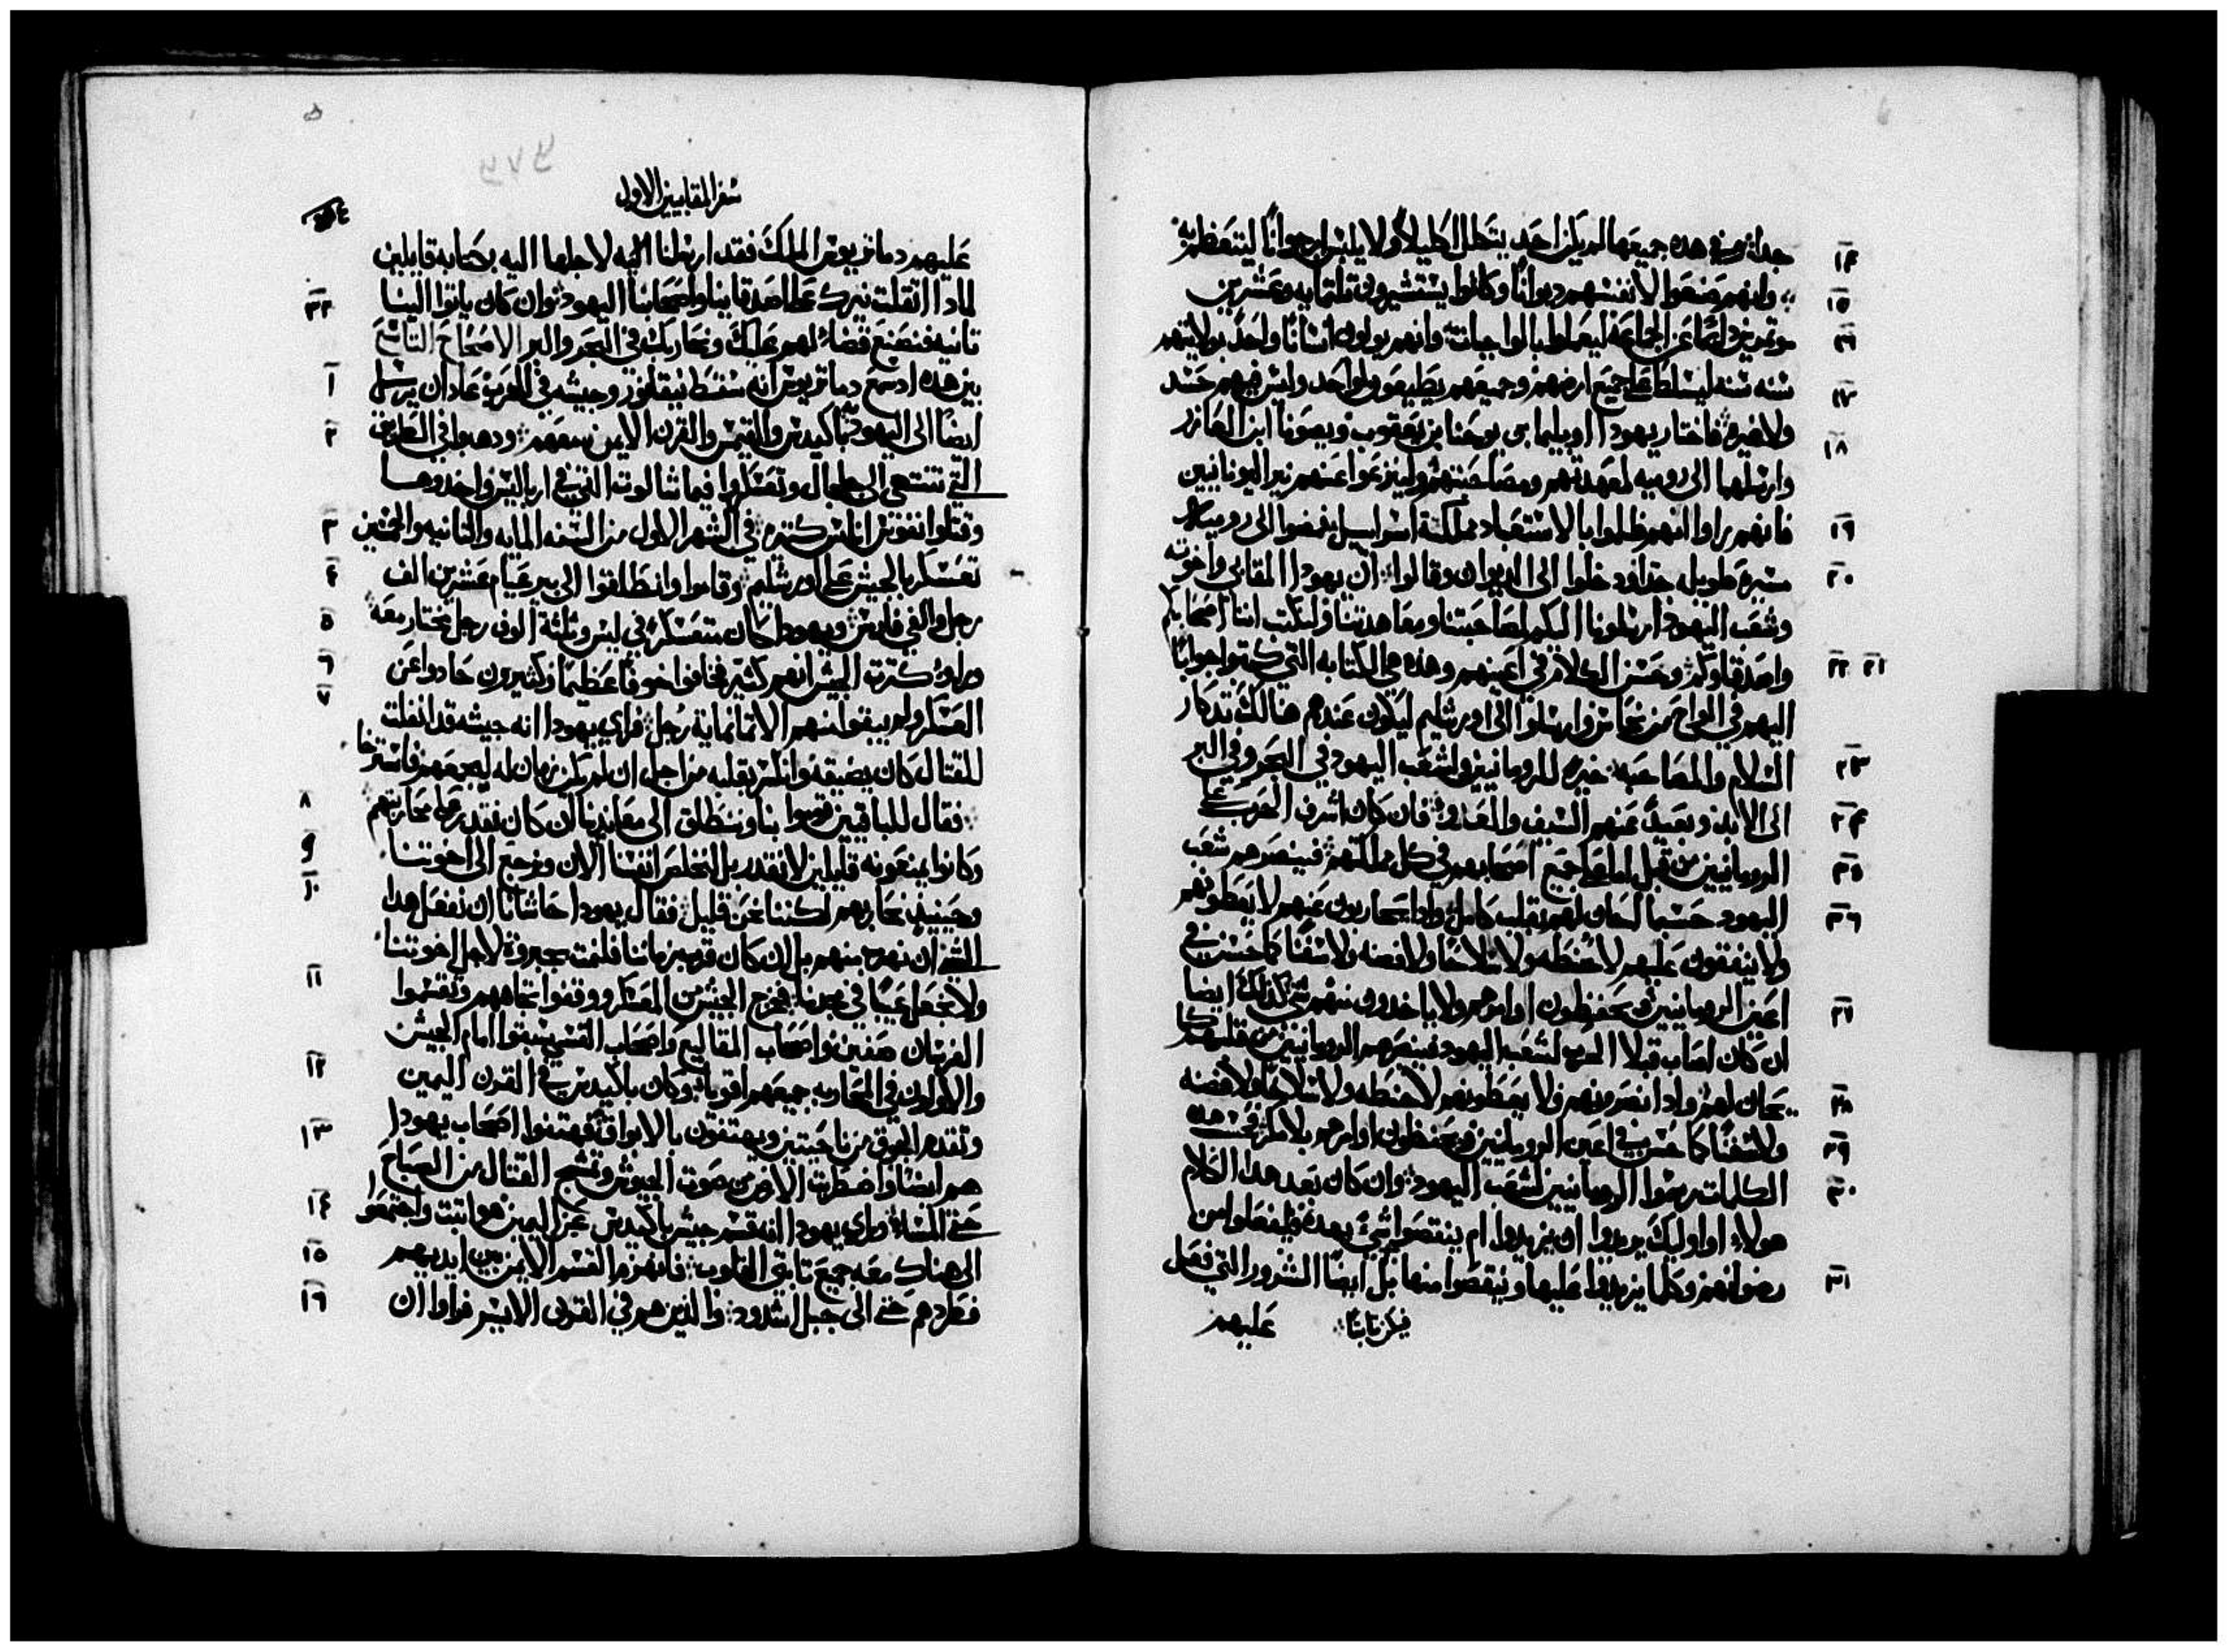 جدا ومن هده جميعها لم يكن احد يتكلل اكليلاً ولا يلبس ارجواناً ليتعظم به
١٤
وانهم صنعوا لانفسهم ديواناً وكانوا يستشيرون تلتمايه وعشرين
١٥
موتمرين دايمًا عن الجماعة ليعملوا بالواجبات وانهم يولون انسانًا واحدً بولايتهم
١٦
سنه سنه ليسلط على جميع ارضهم وجميعهم يطيعون لواحد وليس فيهم حسد
١٧
ولا غيره فاختار يهودا اوبيليما بن يوحنا بن يعقوب ويصونا ابن العازر
١٨
وارسلهما الى روميه لمعهدتهم ومصاحبتهم ولينزعوا عنهم نير اليونانيين
فانهم راوا انهم ظلموا بالاستعباد مملكة اسراييل فمضوا الى روميه
١٩
مسيرة طويله جدا فدخلوا الى الديوان وقالوا ان يهودا المقابي واخوته
٢٠
وشعب اليهود ارسلونا اليكم لمصاحبتنا ومعاهدتنا ولنكتب اننا اصحابكم
واصدقاوكم وحسن الكلام في اعينهم وهذه هي الكتابه التي كتبوا جوابًا
٢١ ٢٢
اليهم في الواح من نحاس وارسلوا الى اورشليم ليكون عندهم هنالك تدكار
السلام والمصاحبه خيره للرومانيين ولشعب اليهود في البحر وفي البر
٢٣
الى الابد وبعيدً عنهم السيف والعدو فان كان اشرف الحرب على
٢٤
الرومانيين من قبل اما على جميع اصحابهم في كل مملكتهم فينصرهم شعب
٢٥
اليهود حسبما الحان لهم بقلب كامل وادا يتحاربون عنهم لا يعطونهم
٢٦
ولا ينفقون عليهم لا حنطه ولا سلاحًا ولا فضه ولا سفنًا كما حسن في
اعين الرومانيين ويحفظون اوامرهم ولا ياخدون منهم شي كذلك ايضا
٢٧
ان كان اصاب قبلا الحرب لشعب اليهود فينصرهم الرومانيين من قلبهم كما
يحان لهم وادا نصروهم ولا يعطونهم لا حنطه ولا سلاحا ولا فضه
٢٨
ولا سفنًا كما حسن في اعين الرومانيين ويحفظون اوامرهم بلا مكر بحسب هذه
٢٩
الكلمات رسموا الرومانيين لشعب اليهود وان كان بعد هدا الكلام
٣٠
هولاء او اوليك يريدوا ان يزيدوا ام ينقصوا شيً بعده فليفعلوا من
رضوانهم وكلما يزيدوا عليها او ينقصوا منها فيكن تابتا بل ايضًا الشرور التي فعل
٣١
عليهم
سفر المقابيين الاول
عليهم دماتريوس الملك فقد ارسلنا اليه لاجلها اليه بكتابه قايلين
لمادا اتقلت نيرك على اصدقاينا واصحابنا اليهود وان كان ياتوا الينا
٣٢
تانيه فنصنع قضاءً لهم عليك ونحاربك في البحر والبر الاصحاح التاسع
بين هده ادسمع دماتريوس انه سقط نيقانور وجيشه في الحرب عاد ان يرسل
١
ايضًا الى اليهوديه باكيديس والقيمس والقرن الايمن معهم ودهبوا في الطريق
٢
التي تنتهي الى جلجال وتعسكروا فيماتالوت التي في ارباليس واخدوها
وقتلوا نفوس اناس كتيره في الشهر الاول من السنه المايه والتانيه والخمسين
٣
تعسكر بالجيش على اورشليم وقاموا وانطلقوا الى بير عيام عشرين الف
٤
رجل والفي فارس ويهودا كان متعسكر في ليس وتلتة الوف رجل مختار معه
٥
وراوا كترت الجيش انهم كتير فخافوا خوفًا عظيمًا وكثيرون حادوا عن
٦
العسكر ولم يبقوا منهم الا تمانماية رجل فراي يهودا انه جيشه قد انفلت
٧
للقتال كان يضيقه وانكسر بقلبه من اجل ان لم يكن زمان له ليجمعهم فاسترخا
فقال للباقيين قوموا بنا وننطلق الى معاندينا ان كان نقدر على محاربتهم
٨
وكانوا يمنعونه قايلين لا نقدر بل نخلص انفسنا الان ونرجع الى اخوتنا
٩
وحينيدٍ نحاربهم لكننا نحن قليل فقال يهودا حاشانا ان نفعل هدا
١٠
الشي ان نهرب منهم بل ان كان قرب زماننا فلنمت بجبروة لاجل اخوتنا
ولا نجعل عيبًا في مجدنا فخرج الجيش من العسكر ووقفوا تجاههم وتقسموا
١١
الفرسان صفين واصحاب المقاليع واصحاب القسي سبقوا امام الجيش
والاولون في المحاربه جميعهم اقويا وكان باكيديس في القرن اليمين
١٢
وتقدم الجوق من ناحيتين ويهتفون بالابواق فهتفوا اصحاب يهودا
١٣
هم ايضا واضطربت الارض من صوت الجيوش وتنشج القتال من الصباح
حتى المساء وراي يهودا انه قسم جيش باكيديس عن اليمين هو اتبت واجتمعوا
١٤
الى هناك معه جميع تابتي القلوب فانهزم القسم الايمن من ايديهم
١٥
فطردهم حتى الى جبل اشدود والدين هم في القرن الايسر فراوا ان
١٦